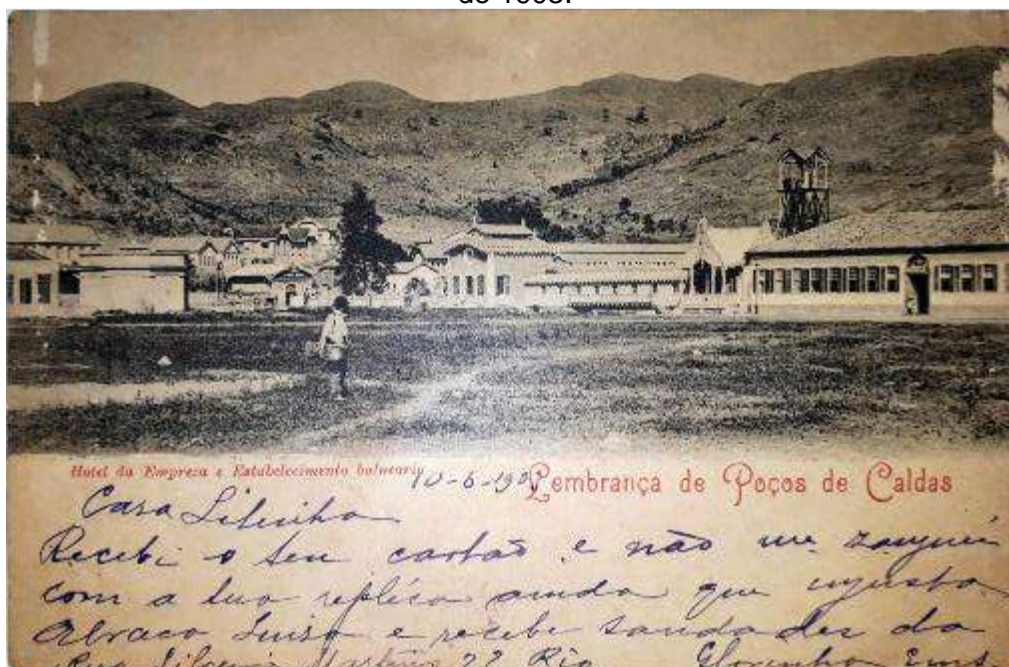 Hotel da Empreza e Estabelecimento balneario
10-6-190
Lembrança de Poços de Caldas
Cara
Recebi o teu cartão e não me zanguei
com a tua replica ainda que injusta
Abraço Luisa e recebe saudades da
22 Rio